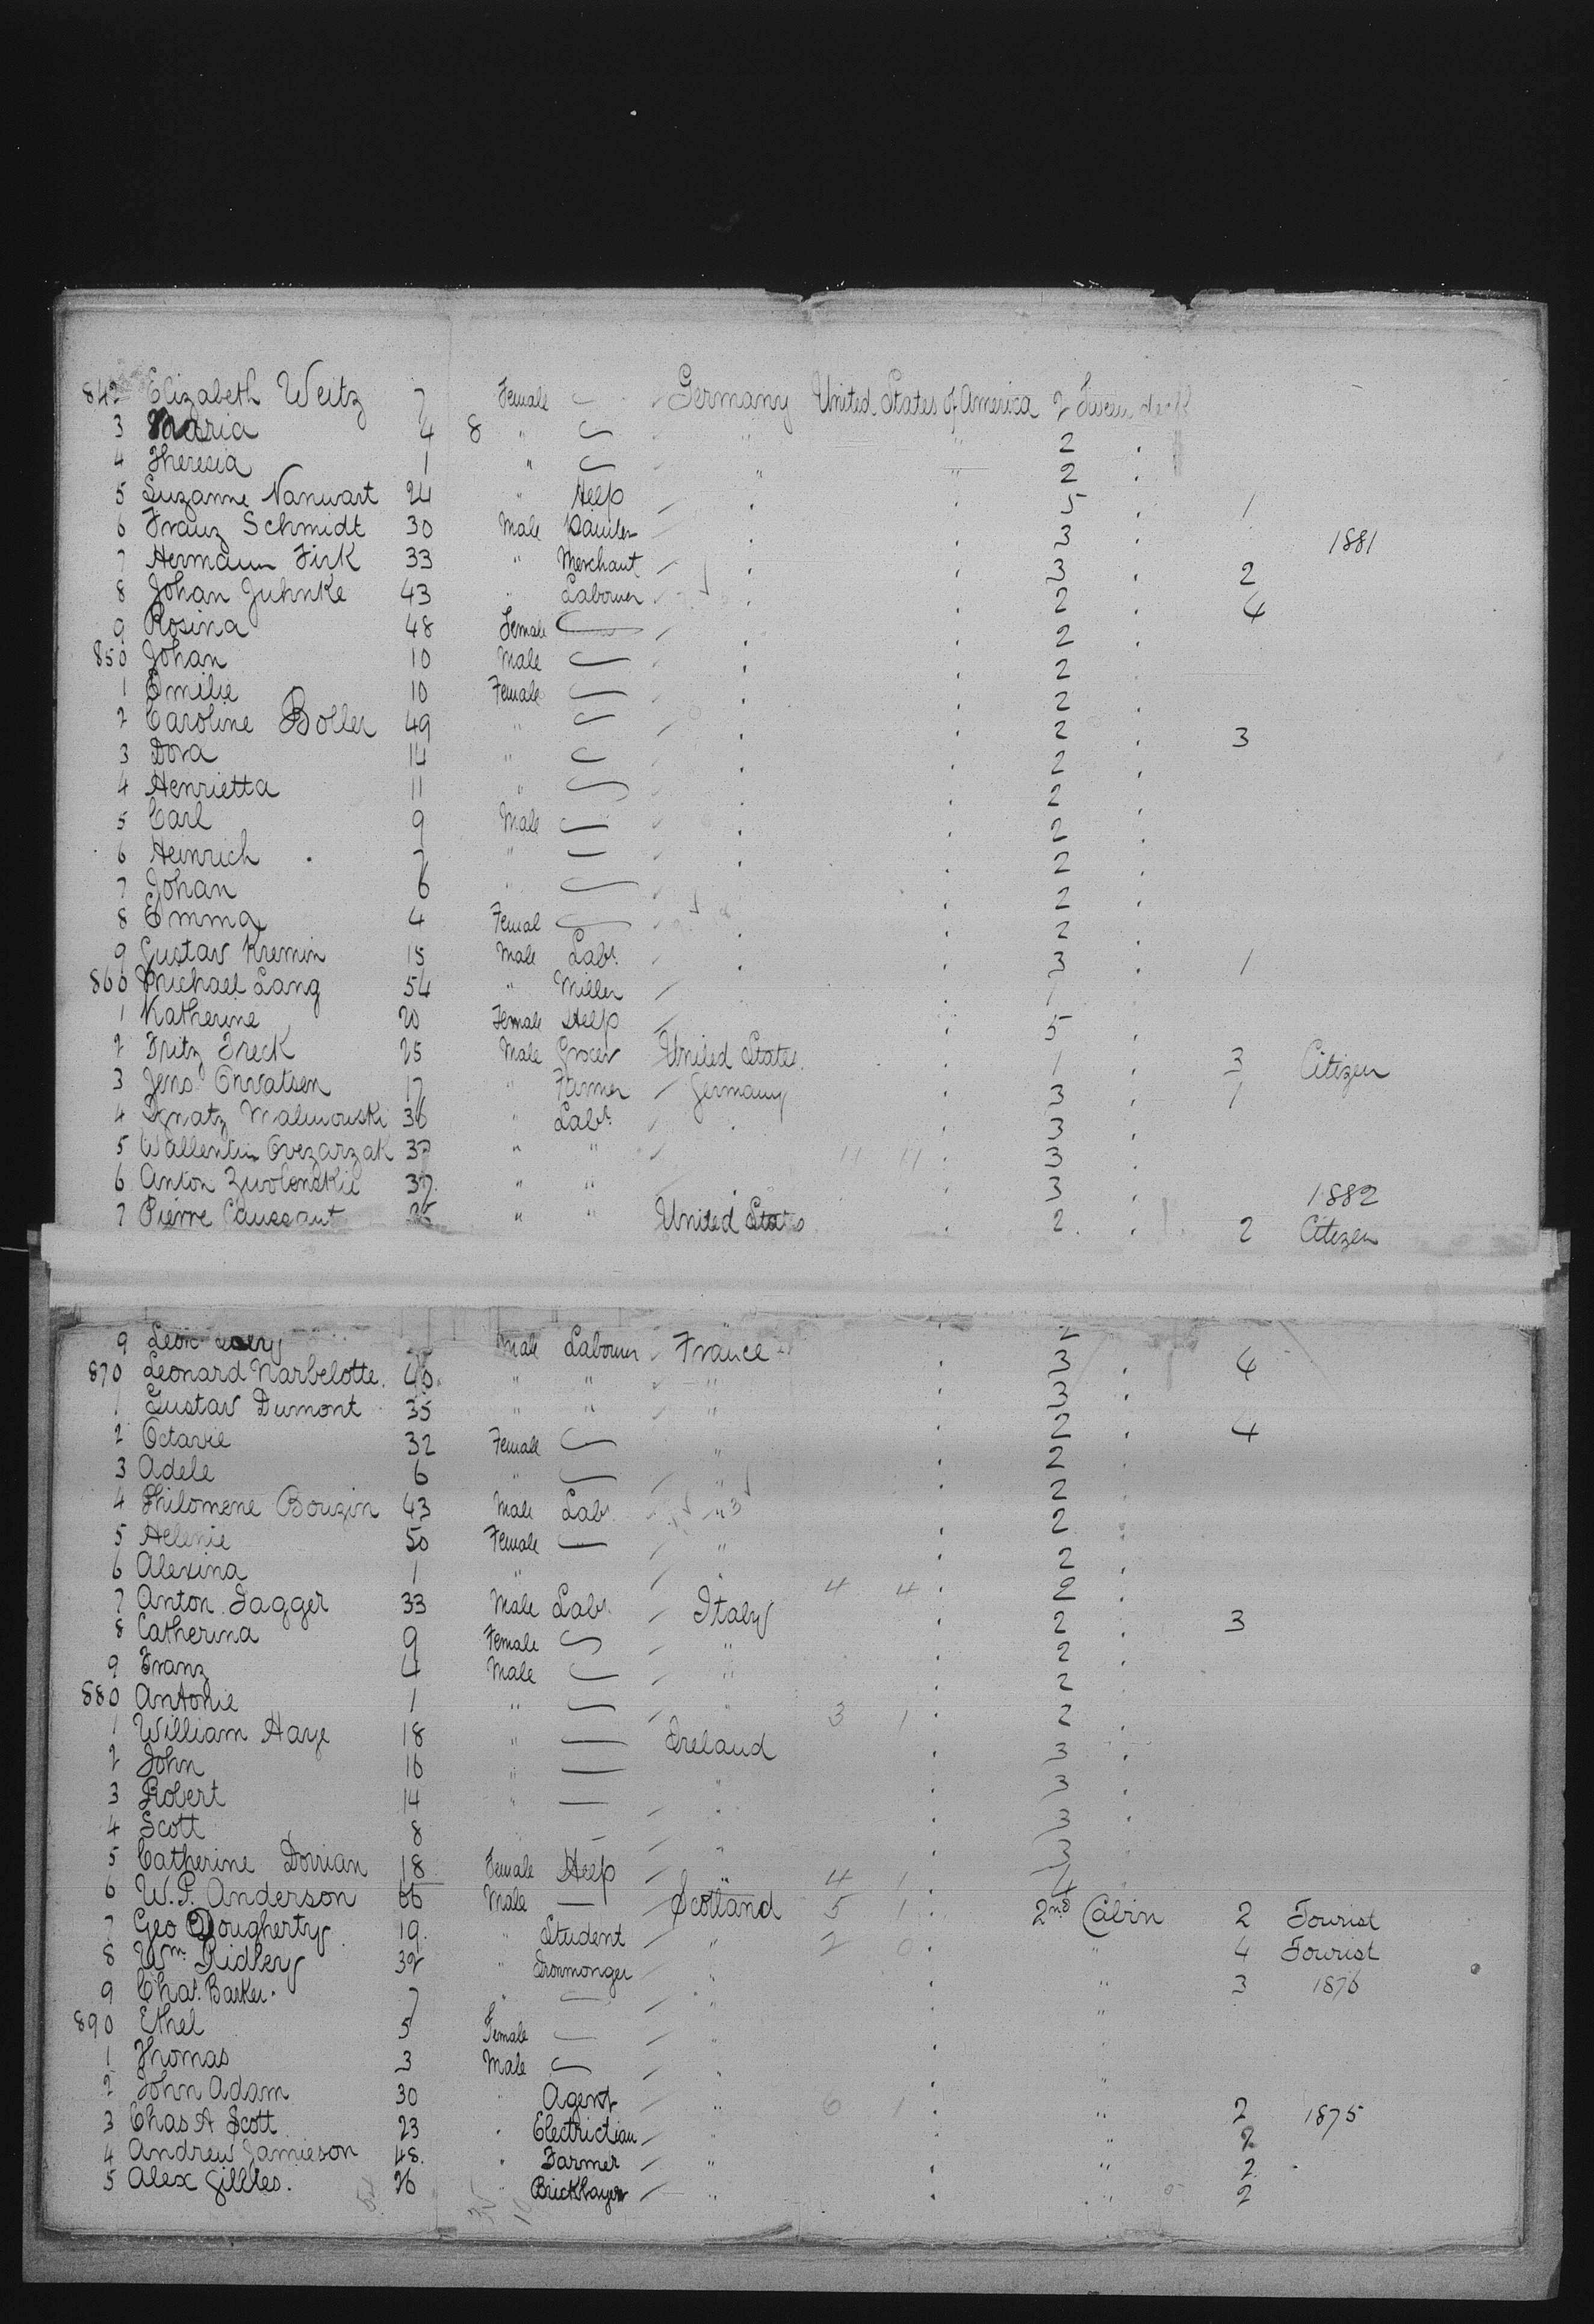 842 Elizabeth Weitz 7 Female Germany United States of America 2
3 Maria 4 8 " " " 2
4 Theresia 1 " " " 2
5 Suzanne Nanwart 24 " Help 5 1
6 Franz Schmidt 30 Male Painter 3 1881
7 Hermann Firk 33 " Merchant 3 2
8 Johan Juhnke 43 " Labourer 2 4
9 Rosina 48 Female 2
850 Johan 10 Male 2
1 Emilie 10 Female 2
2 Caroline Boller 49 " 2 3
3 Dora 14 " 2
4 Henrietta 11 " 2
5 Carl 9 Male 2
6 Heinrich 7 " 2
7 Johan 6 " 2
8 Emma 4 Femal 2
9 Gustav Kremin 18 Male Labr. 3 1
860 Michael Lang 54 " Miller 1
1 Katherine 20 Female Help 5
2 Fritz Freck 25 Male Grocer United States 1 3 Citizen
3 Jens 17 " Farmer Germany 3 1
4 Ignatz Malinouski 36 " Labr. 3
5 Wallentin Ovezarzak 37 " " 11 11 3
6 Anton Zwolenskie 37 " " 3 1882
7 Pierre Caussaut 25 " " United States 2 2 Citizen
9 Leon Male Labourer France 2
870 Leonard Narbelotte 40 " " " 3 4
1 Gustav Dumont 35 " " " 3
2 Octavie 32 Female " 2 4
3 Adele 6 " " 2
4 Philomene Bouzin 43 Male Labr. " 3 2
5 Helenie 50 Female " 2
6 Alexina 1 " 4 4 2
7 Anton Jagger 33 Male Labr. Italy 2
8 Catherina 9 Female " 2 3
9 Franz 4 Male " 2
880 Antonie 1 " " 3 1 2
1 William Haye 18 " Ireland 2
2 John 16 " " 3
3 Robert 14 " " 3
4 Scott 8 " 3
5 Catherine Dorrian 18 Female Help " 4 1 3
6 W.P. Anderson 66 Male Scotland 5 1 2nd Cabin 2 Tourist
7 Geo Dougherty 19. " Student " 2 0 " 4 Tourist
8 Wm. Ridley 32 " Ironmonger " " 3 1876
9 Chas. Barker. 7 " " "
890 Ethel 5 Female "
1 Thomas 3 Male "
2 John Adam 30 " Agent " 6 1 " 2 1875
3 Chas A Scott 23 " Electrician " 2
4 Andrew Jamieson 48. " Farmer " " 2
5 Alex Gillies. 26 " Bricklayer " " 2